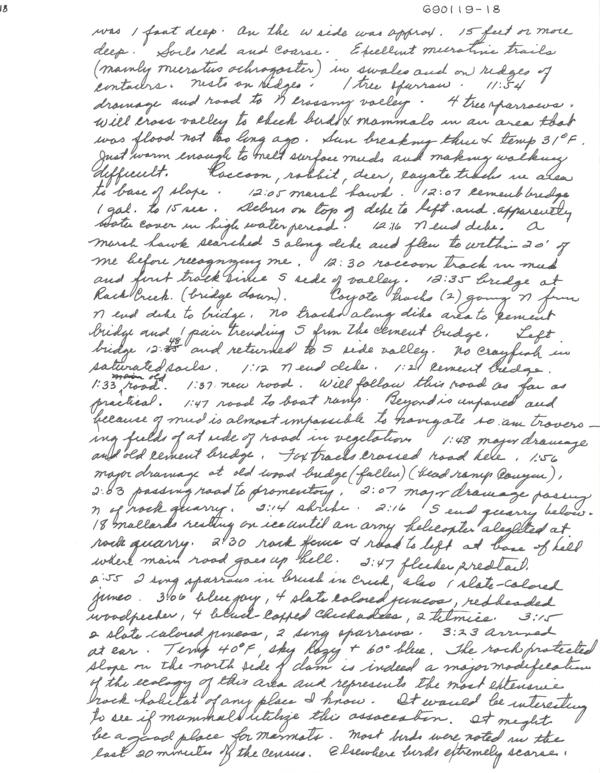 18
690119-18
was 1 foot deep. On the W side was approx. 15 feet or more
deep. Soils red and coarse. Excellent microtine trails
(mainly microtus ochrogaster) in swales and on ridges of
contours. nests on ridges. 1 tree sparrow. 11:54
drainage and road to N crossing valley. 4 tree sparrows.
Will cross valley to check birds & mammals in an area that
was flood not too long ago. Sun breaking thru & temp 31°F.
Just warm enough to melt surface muds and making walking
difficult. Raccoon, rabbit, deer, coyote tracks in area
to base of slope. 12:05 marsh hawk. 12:07 cement bridge
1 gal. to 15 sec. Debris on top of dike to left and apparently
water cover in high water period. 12:16 N end dike. A
marsh hawk searched S along dike and flew to within 20' of
me before recognizing me. 12:30 raccoon track in mud
and first track since S side of valley. 12:35 bridge at
Rock Creek. (bridge down). Coyote tracks (2) going N from
N end dike to bridge. No tracks along dike area to cement
bridge and 1 pair trending S from the cement bridge. Left
bridge 12:48 and returned to S side valley. No crayfish in
saturated soils. 1:12 N end dike. 1:21 cement bridge.
1:33 main old road. 1:37 new road. Will follow this road as far as
practical. 1:47 road to boat ramp. Beyond is unpaved and
because of mud is almost impossible to navigate so am travers-
ing fields at side of road in vegetation. 1:48 major drainage
and old cement bridge. Fox tracks crossed road here. 1:56
major drainage at old wood bridge (fallen) (boat ramp Canyon).
2:03 passing road to promontory. 2:07 major drainage passing
N of rock quarry. 2:14 shrike. 2:16 S end quarry below.
18 mallards resting on ice until an army helicopter alighted at
rock quarry. 2:30 rock fence & road to left at base of hill
where main road goes up hill. 2:47 flicker & redtail.
2:55 2 song sparrows in brush in creek, also 1 slate-colored
junco. 3:06 blue jay, 4 slate colored juncos, redheaded
woodpecker, 4 black-capped chickadees, 2 titmice. 3:15
2 slate-colored juncos, 2 song sparrows. 3:23 arrived
at car. Temp 40°F, sky hazy & 60° blue. The rock protected
slope on the north side of dam is indeed a major modification
of the ecology of this area and represents the most extensive
rock habitat of any place I know. It would be interesting
to see if mammals utilize this association. It might
be a good place for marmots. Most birds were noted in the
last 20 minutes of the census. Elsewhere birds extremely scarse.